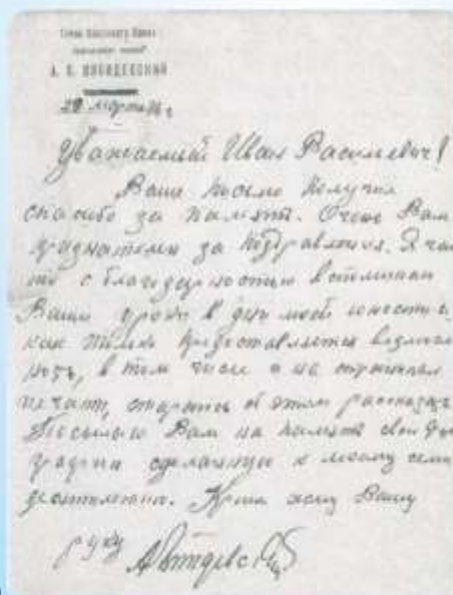 Член Союза
А. С.
29 марта 76 г.
Уважаемый Иван Васильевич!
Ваше письмо получил
спасибо за память. Очень Вам
признателен за поздравления. Я час
то с благодарностью вспоминаю
Ваши уроки в дни моей юности и,
как только предоставляется возмож
ность, в том числе и на страницах
печати, стараюсь об этом рассказать
Посылаю Вам на память свою фото
графию сделанную к моему семи
десятилетию. Крепко жму Вашу
руку